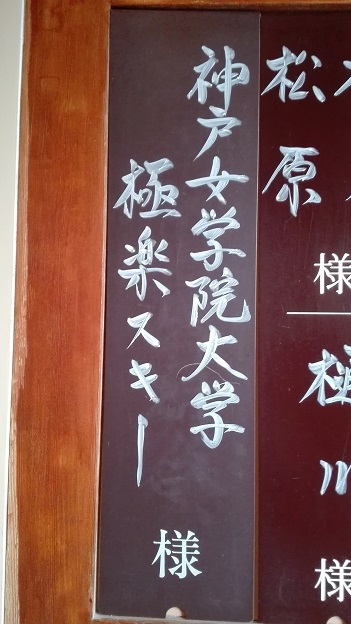 松原
様
神戸女学院大学
極楽スキー
様
川
様